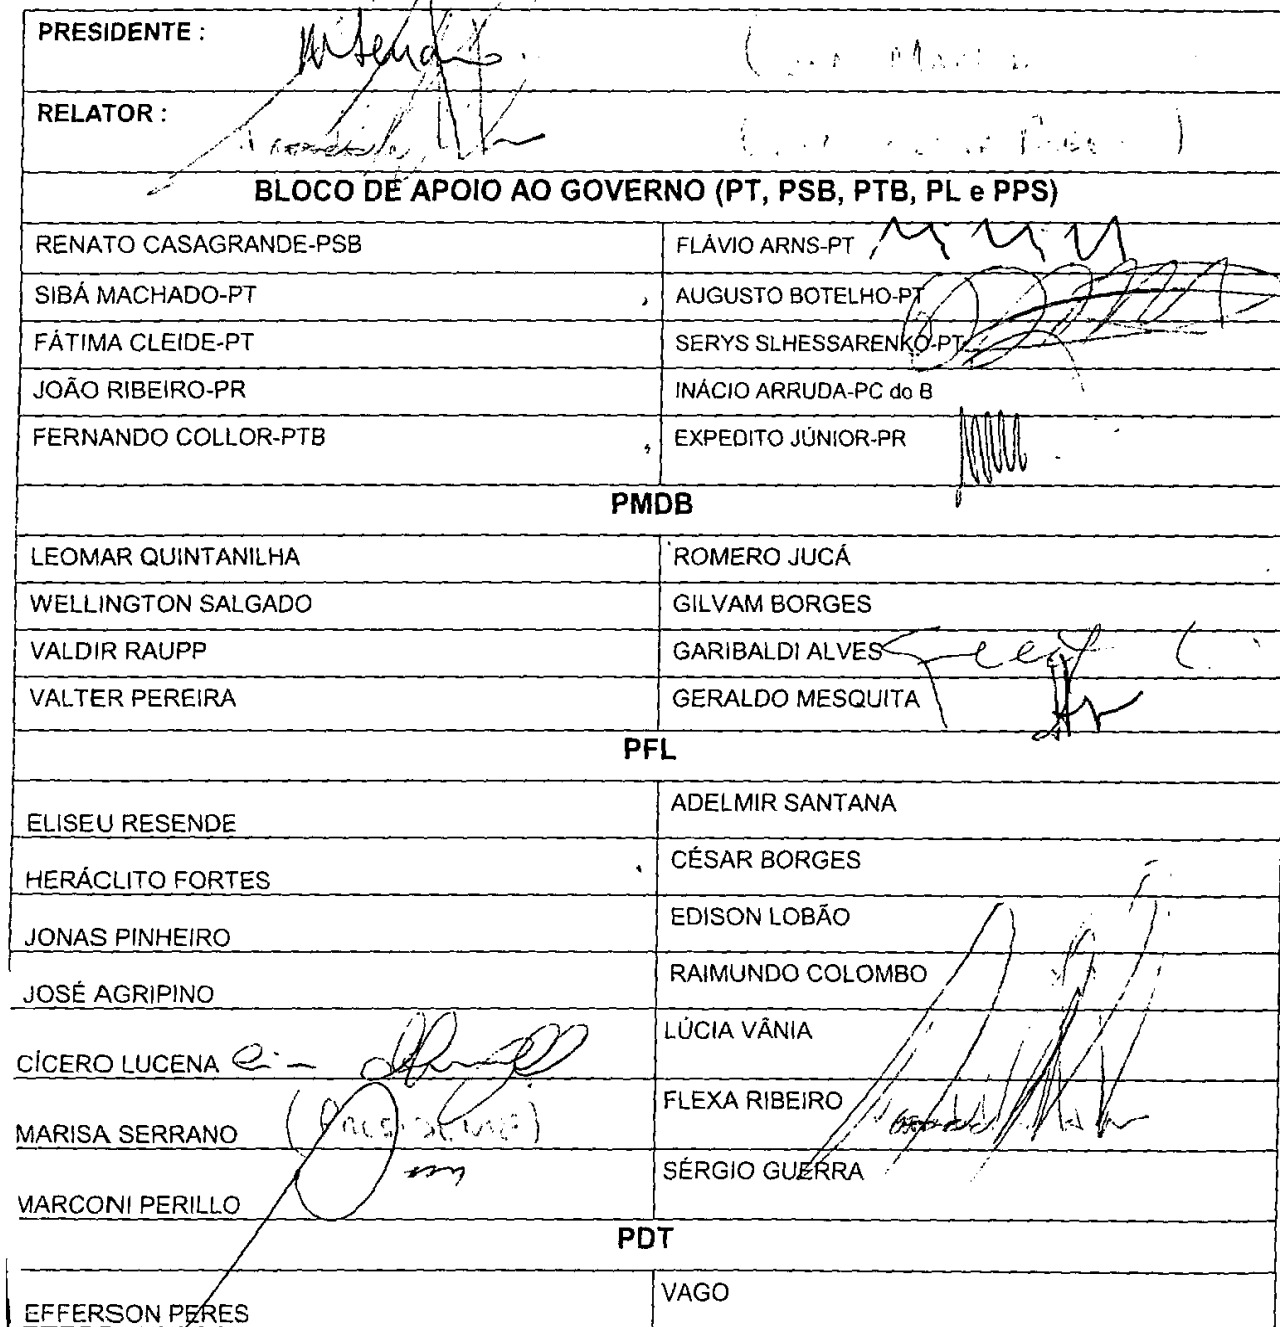 PRESIDENTE :
RELATOR :
BLOCO DE APOIO AO GOVERNO (PT, PSB, PTB, PL e PPS)
RENATO CASAGRANDE-PSB FLÁVIO ARNS-PT
SIBÁ MACHADO-PT AUGUSTO BOTELHO-PT
FÁTIMA CLEIDE-PT SERYS SLHESSARENKO-PT
JOÃO RIBEIRO-PR INÁCIO ARRUDA-PC do B
FERNANDO COLLOR-PTB EXPEDITO JÚNIOR-PR
PMDB
LEOMAR QUINTANILHA ROMERO JUCÁ
WELLINGTON SALGADO GILVAM BORGES
VALDIR RAUPP GARIBALDI ALVES
VALTER PEREIRA GERALDO MESQUITA
PFL
ELISEU RESENDE ADELMIR SANTANA
HERÁCLITO FORTES CÉSAR BORGES
JONAS PINHEIRO EDISON LOBÃO
JOSÉ AGRIPINO RAIMUNDO COLOMBO
CÍCERO LUCENA LÚCIA VÂNIA
MARISA SERRANO (PRESIDENTE) FLEXA RIBEIRO
MARCONI PERILLO SÉRGIO GUERRA
PDT
EFFERSON PERES VAGO